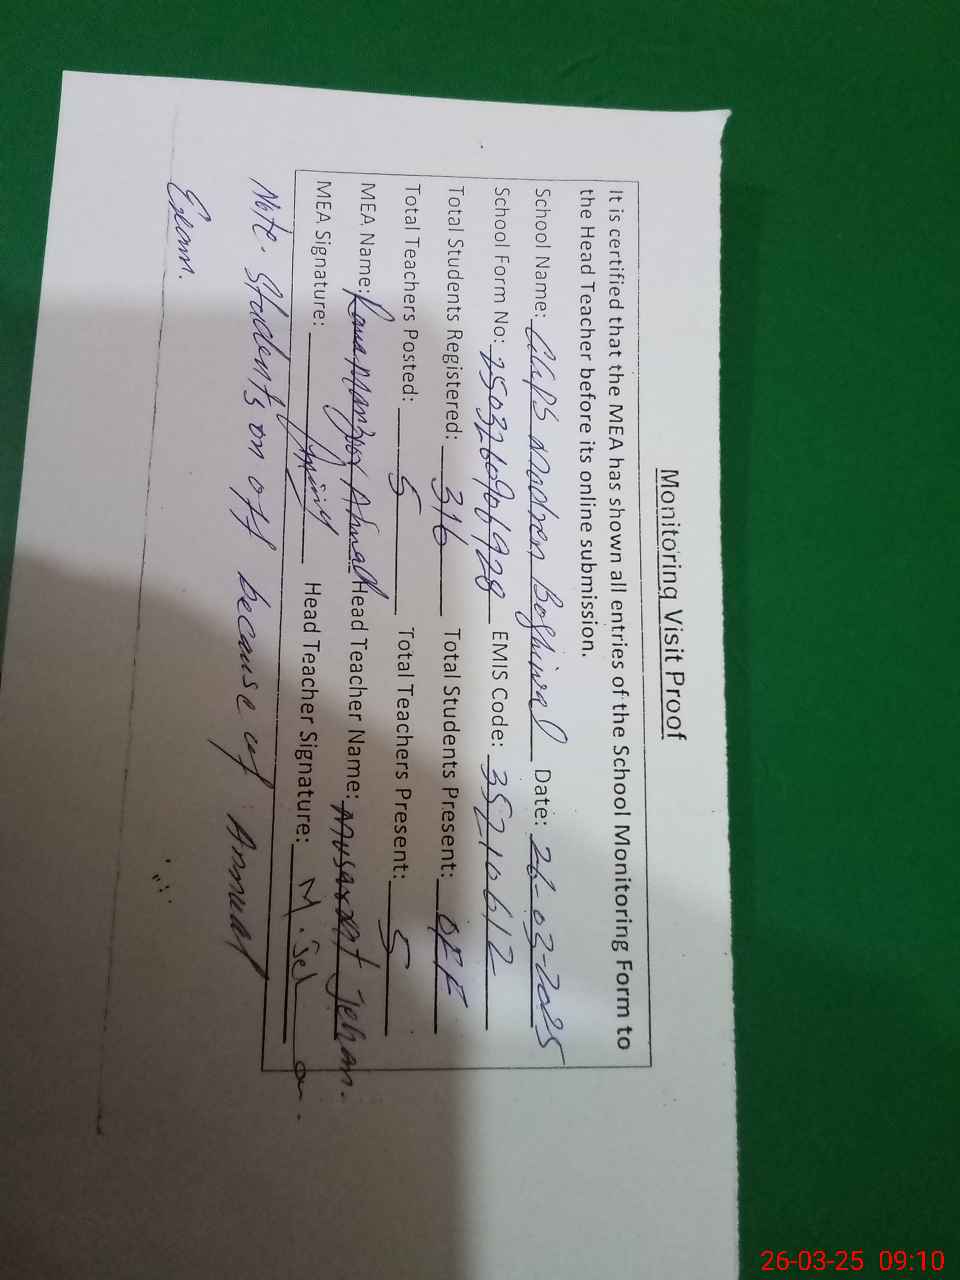 Monitoring Visit Proof
It is certified that the MEA has shown all entries of the School Monitoring Form to
the Head Teacher before its online submission.
School Name: Date: 26-03-2025
School Form No: EMIS Code: 35210612
Total Students Registered: 316 Total Students Present: OFF
Total Teachers Posted: 5 Total Teachers Present: 5
MEA Name: Rana Manzoor Ahmad Head Teacher Name: Musarrat Jehan.
MEA Signature: Head Teacher Signature:
Note. Students on off because of Annual
Exam.
26-03-25 09:10